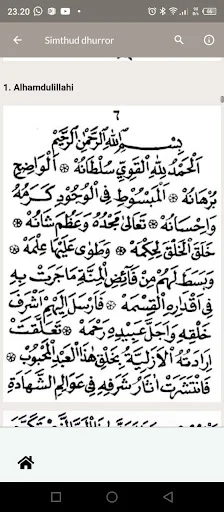 23.20
Simthud dhurror
1. Alhamdulillahi
٦
بِسْمِ اللهِ الرَّحْمٰنِ الرَّحِيْمِ
اَلْحَمْدُ لِلّٰهِ الْقَوِيِّ سُلْطَانُهْ ۞ اَلْوَاضِحِ
بُرْهَانُهْ ۞ اَلْمَبْسُوْطِ فِي الْوُجُوْدِ كَرَمُهُ
وَاِحْسَانُهْ ۞ تَعَالٰى مَجْدُهُ وَعَظُمَ شَانُهْ ۞
خَلَقَ الْخَلْقَ لِحِكْمَهْ ۞ وَطَوٰى عَلَيْهَا عِلْمَهْ ۞
وَبَسَطَ لَهُمْ مِنْ فَائِضِ الْمِنَّةِ مَاجَرَتْ بِهِ
فِيْ اَقْدَارِهِ الْقِسْمَهْ ۞ فَاَرْسَلَ اِلَيْهِمْ اَشْرَفَ
خَلْقِهِ وَاَجَلَّ عَبِيْدِهِ رَحْمَهْ ۞ تَعَلَّقَتْ
اِرَادَتُهُ الْاَزَلِيَّةُ بِخَلْقِ هٰذَا الْعَبْدِ الْمَحْبُوْبِ ۞
فَانْتَشَرَتْ اٰثَارُ شَرَفِهِ فِيْ عَوَالِمِ الشَّهَادَةِ